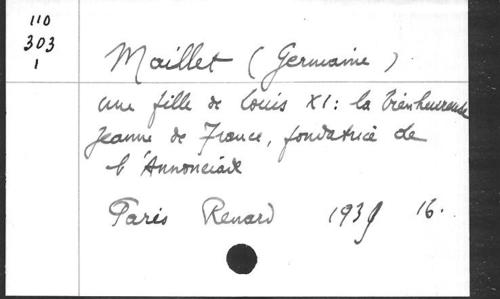 110
303
1
Maillet (Germaine)
une fille de Louis XI : la bienheureuse
Jeanne de France, fondatrice de
l'Annonciade
Paris Renard 1939 16.